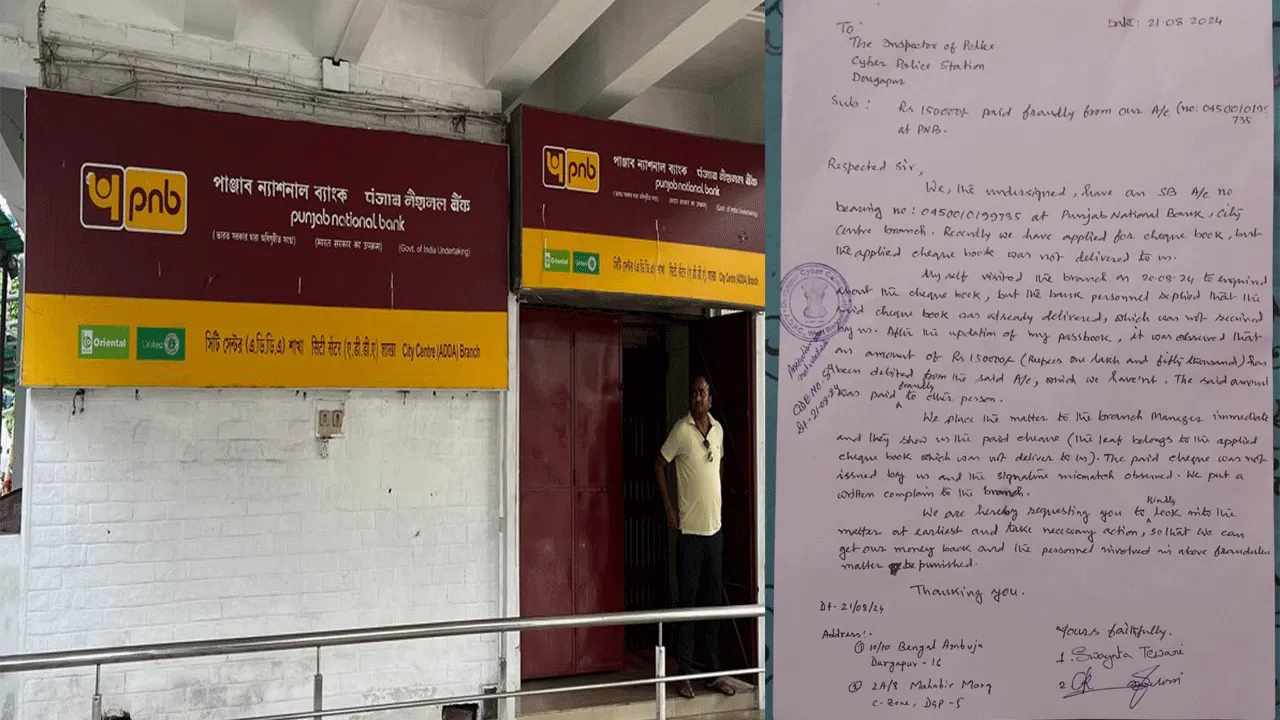 pnb
পাঞ্জাব ন্যাশনাল ব্যাংক ਪੰਜਾਬ नैशनल बैंक
punjab national bank
(ভারত সরকার দ্বারা অধিগৃহীত সংস্থা) (भारत सरकार का उपक्रम) (Govt. of India Undertaking)
Oriental United
সিটি সেন্টার (এ.ডি.ডি.এ) শাখা सिटी सेंटर (ए.डी.डी.ए) शाखा City Centre (ADDA) Branch
pnb
পাঞ্জাব ন্যাশনাল ব্যাংক
punjab national bank
(Govt. of India Undertaking)
Oriental
সিটি সেন্টার শাখা सिटी सेंटर शाखा City Centre (ADDA) Branch
DATE: 21-08-2024
To
The Inspector of Police
Cyber Police Station
Durgapur
Sub: Rs 150000/- paid fraudly from our A/c (no: 0450010199
735
at PNB.
Respected Sir,
We, the undersigned, have an SB A/c no
bearing no: 0450010199735 at Punjab National Bank, City
Centre branch. Recently we have applied for cheque book, but
the applied cheque book was not delivered to us.
My self visited the branch on 20-08-24 to enquired
about the cheque book, but the bank personnel replied that the
said cheque book was already delivered, which was not received
by us. After the updation of my passbook, it was observed that
an amount of Rs 150000/- (Rupees one lakh and fifty thousand) has
been debited from the said A/c, which we have'nt. The said amount
was paid fraudly to other person.
We place the matter to the branch Manager immediate
and they show us the paid cheque (the leaf belongs to the applied
cheque book which was not deliver to us). The paid cheque was not
issued by us and the signature mismatch observed. We put a
written complain to the branch.
We are hereby requesting you to kindly look into the
matter at earliest and take necessary action, so that we can
get our money back and the personnel involved in above fraudulen
matter be punished.
Thanking you.
Dt- 21/08/24
Address:-
① 10/10 Bengal Ambuja
Durgapur-16
② 2A/8 Mahabir Marg
C-Zone, DGP-5
Yours faithfully.
1. Tewari
2.
Cyber
GDE NO-
Dt-21-08-24